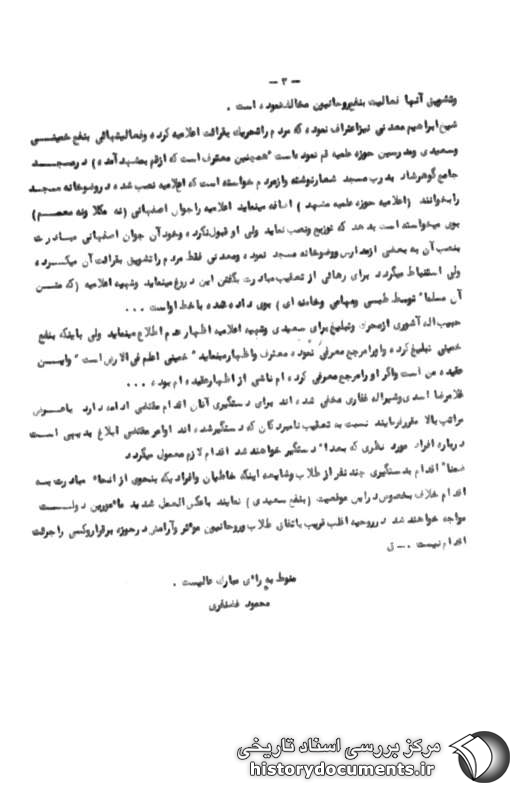 — ۳ —
وتشویق آنها فعالیت بنفع روحانیون مخالف نموده است .
شیخ ابراهیم معدنی نیز اعتراف نموده که مردم را تحریک بقرائت اعلامیه کرده و فعالیتهائی بنفع خمینی
وسعیدی ومدرسین حوزه علمیه قم نموده است همچنین معترف است که از قم بمشهد آمده ) در مسجد
جامع گوهرشاد بدرب مسجد شعار نوشته واز مردم خواسته است که اعلامیه نصب شده در وضوخانه مسجد
را بخوانند (اعلامیه حوزه علمیه مشهد ) اضافه مینماید اعلامیه را جوان اصفهانی (نه مکلا ونه معمم)
بوی میخواسته است بدهد که توزیع ونصب نماید ولی او قبول نکرده وخود آن جوان اصفهانی مبادرت
بنصب آن به بعضی از مدارس ووضوخانه مسجد نموده ومعدنی فقط مردم را تشویق بقرائت آن میکرده
ولی استنباط میگردد برای رهائی از تعقیب مبادرت بگفتن این دروغ مینماید وتهیه اعلامیه (که متن
آن مسلما" توسط طبسی و وخامنه ای ) بوی داده شده با خط اواست ...
حبیب اله آشوری از محرک وتبلیغ برای سعیدی وتهیه اعلامیه اظهار عدم اطلاع مینماید ولی با اینکه بنفع
خمینی تبلیغ کرده واو را مرجع معرفی نموده معترف واظهار مینماید " خمینی اعلم فی الارض است " واین
عقیده من است واگر او را مرجع معرفی کرده ام ناشی از اظهار عقیده ام بوده ...
غلامرضا اسدی وشیراله غفاری مخفی شده اند برای دستگیری آنان اقدام مقتضی ادامه دارد باعرض
مراتب بالا مقرر فرمایند نسبت به تعقیب نامبردگان که دستگیر شده اند اوامر مقتضی ابلاغ بدیهی است
درباره افراد مورد نظری که بعدا" دستگیر خواهند شد اقدام لازم معمول میگردد
ضمنا" اقدام بدستگیری چند نفر از طلاب وشایعه اینکه خاطیان وافرادیکه بنحوی از انحاء مبادرت به
اقدام خلاف بخصوص در این موقعیت (بنفع سعیدی) نمایند با عکس العمل شدید مامورین دولت
مواجه خواهند شد در روحیه اغلب قریب باتفاق طلاب وروحانیون موثر وآرامش در حوزه برقرار وکسی را جرئت
اقدام نیست . — ق
منوط به رأی مبارک عالیست .
محمود غضنفری
مرکز بررسی اسناد تاریخی
historydocuments.ir